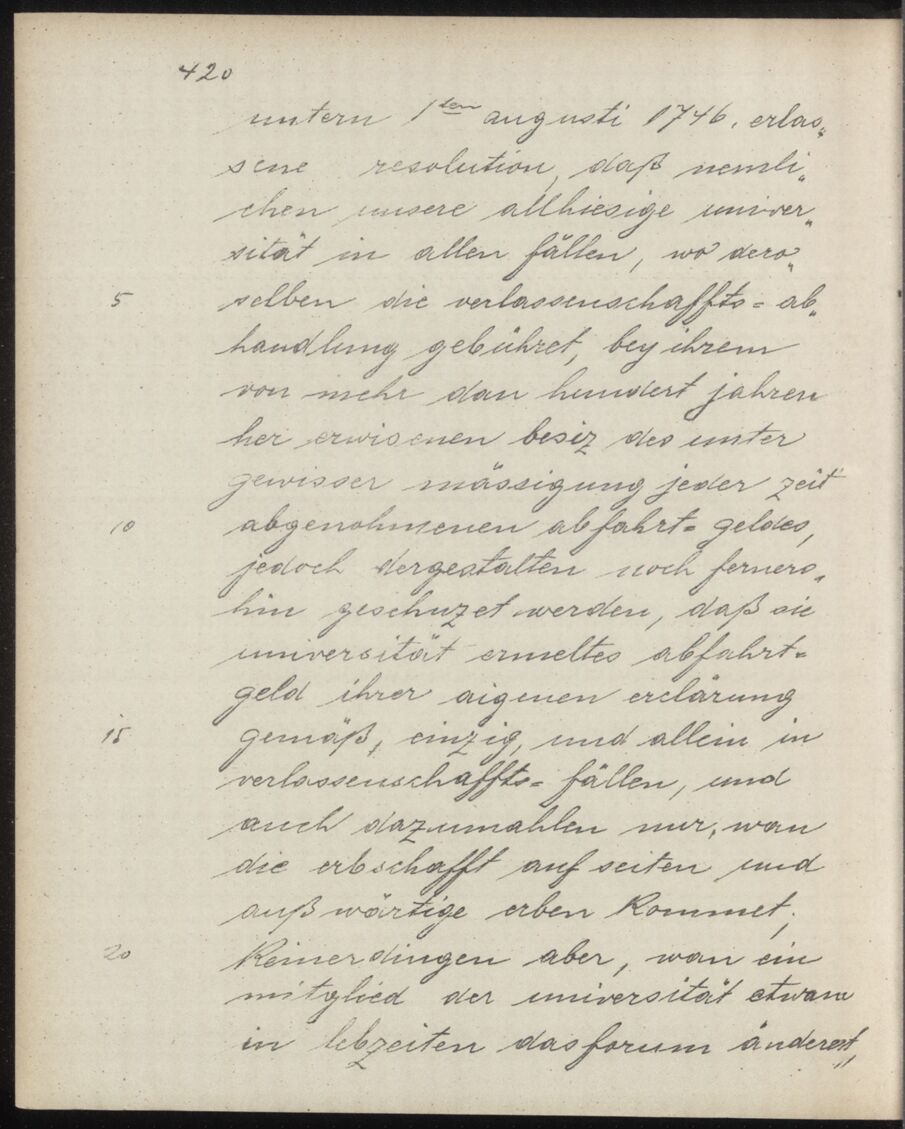 420
untern 1ten augusti 1746. erlas„
sene resolution, daß nemli„
chen unsere allhiesige univer„
sität in allen fällen, wo dero„
5 selben die verlassenschaffts= ab„
handlung gebühret, bey ihrem
von mehr dan hundert jahren
her erwisenen besiz des unter
gewisser mässigung jeder zeit
10 abgenohmenen abfahrt= geldes,
jedoch dergestalten noch ferners„
hin geschuzet werden, daß sie
universität ermeltes abfahrt=
geld ihrer aigenen erclärung
15 gemäß, einzig, und allein in
verlassenschaffts= fällen, und
auch dazumahlen nur, wan
die erbschafft auf seiten und
außwärtige erben kommet,
20 keinerdingen aber, wan ein
mitglied der universität etwan
in lebzeiten das forum änderet„